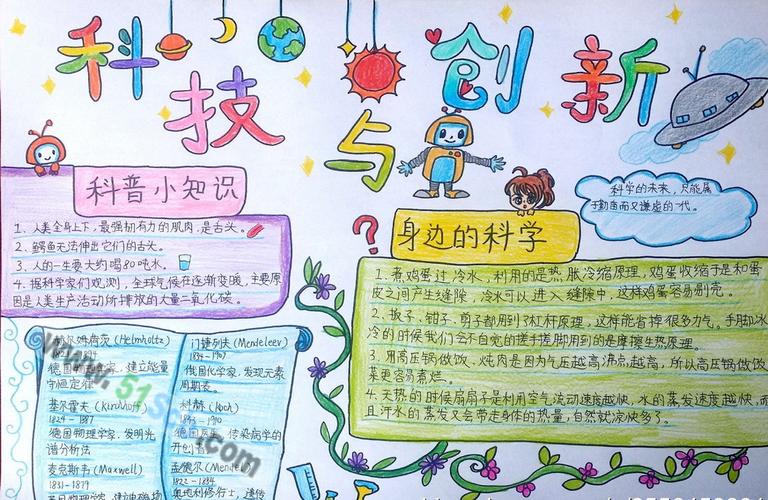 科技与创新
科普小知识
1、人类全身上下,最强韧有力的肌肉,是舌头。
2、鳄鱼无法伸出它们的舌头。
3、人的一生要大约喝80吨水。
4、据科学家们观测,全球气候在逐渐变暖,主要原
因是人类生产活动所排放的大量二氧化碳。
科学的未来,只能属
于勤奋而又谦虚的一代。
身边的科学
1、煮鸡蛋过冷水,利用的是热胀冷缩原理,鸡蛋收缩于是和蛋
皮之间产生缝隙,冷水可以进入缝隙中,这样鸡蛋容易剥壳。
2、扳子、钳子、剪子都用到了杠杆原理,这样能省掉很多力气。手脚冰
冷的时候我们会不自觉的搓手搓脚用到的是摩擦生热原理。
3、用高压锅做饭、炖肉是因为气压越高沸点越高,所以高压锅做饭
菜更容易煮烂。
4、天热的时候扇扇子是利用空气流动速度越快,水的蒸发速度越快,而
且汗水的蒸发又会带走身体的热量,自然就凉快多了。
赫尔姆荷茨(Helmholtz)
德国 学家,建立能量
守恒定律
基尔霍夫(Kirchhoff)
1824-1887
德国物理学家,发明光
谱分析法
麦克斯韦(Maxwell)
1831-1879
门捷列夫(Mendeleev)
1834-1907
俄国化学家,发现元素
周期表。
科赫(Koch)
1843-1910
德国医 ,传染病学的
开创者
孟德尔(Mendel)
1822-1884
奥地利修行士,遗传